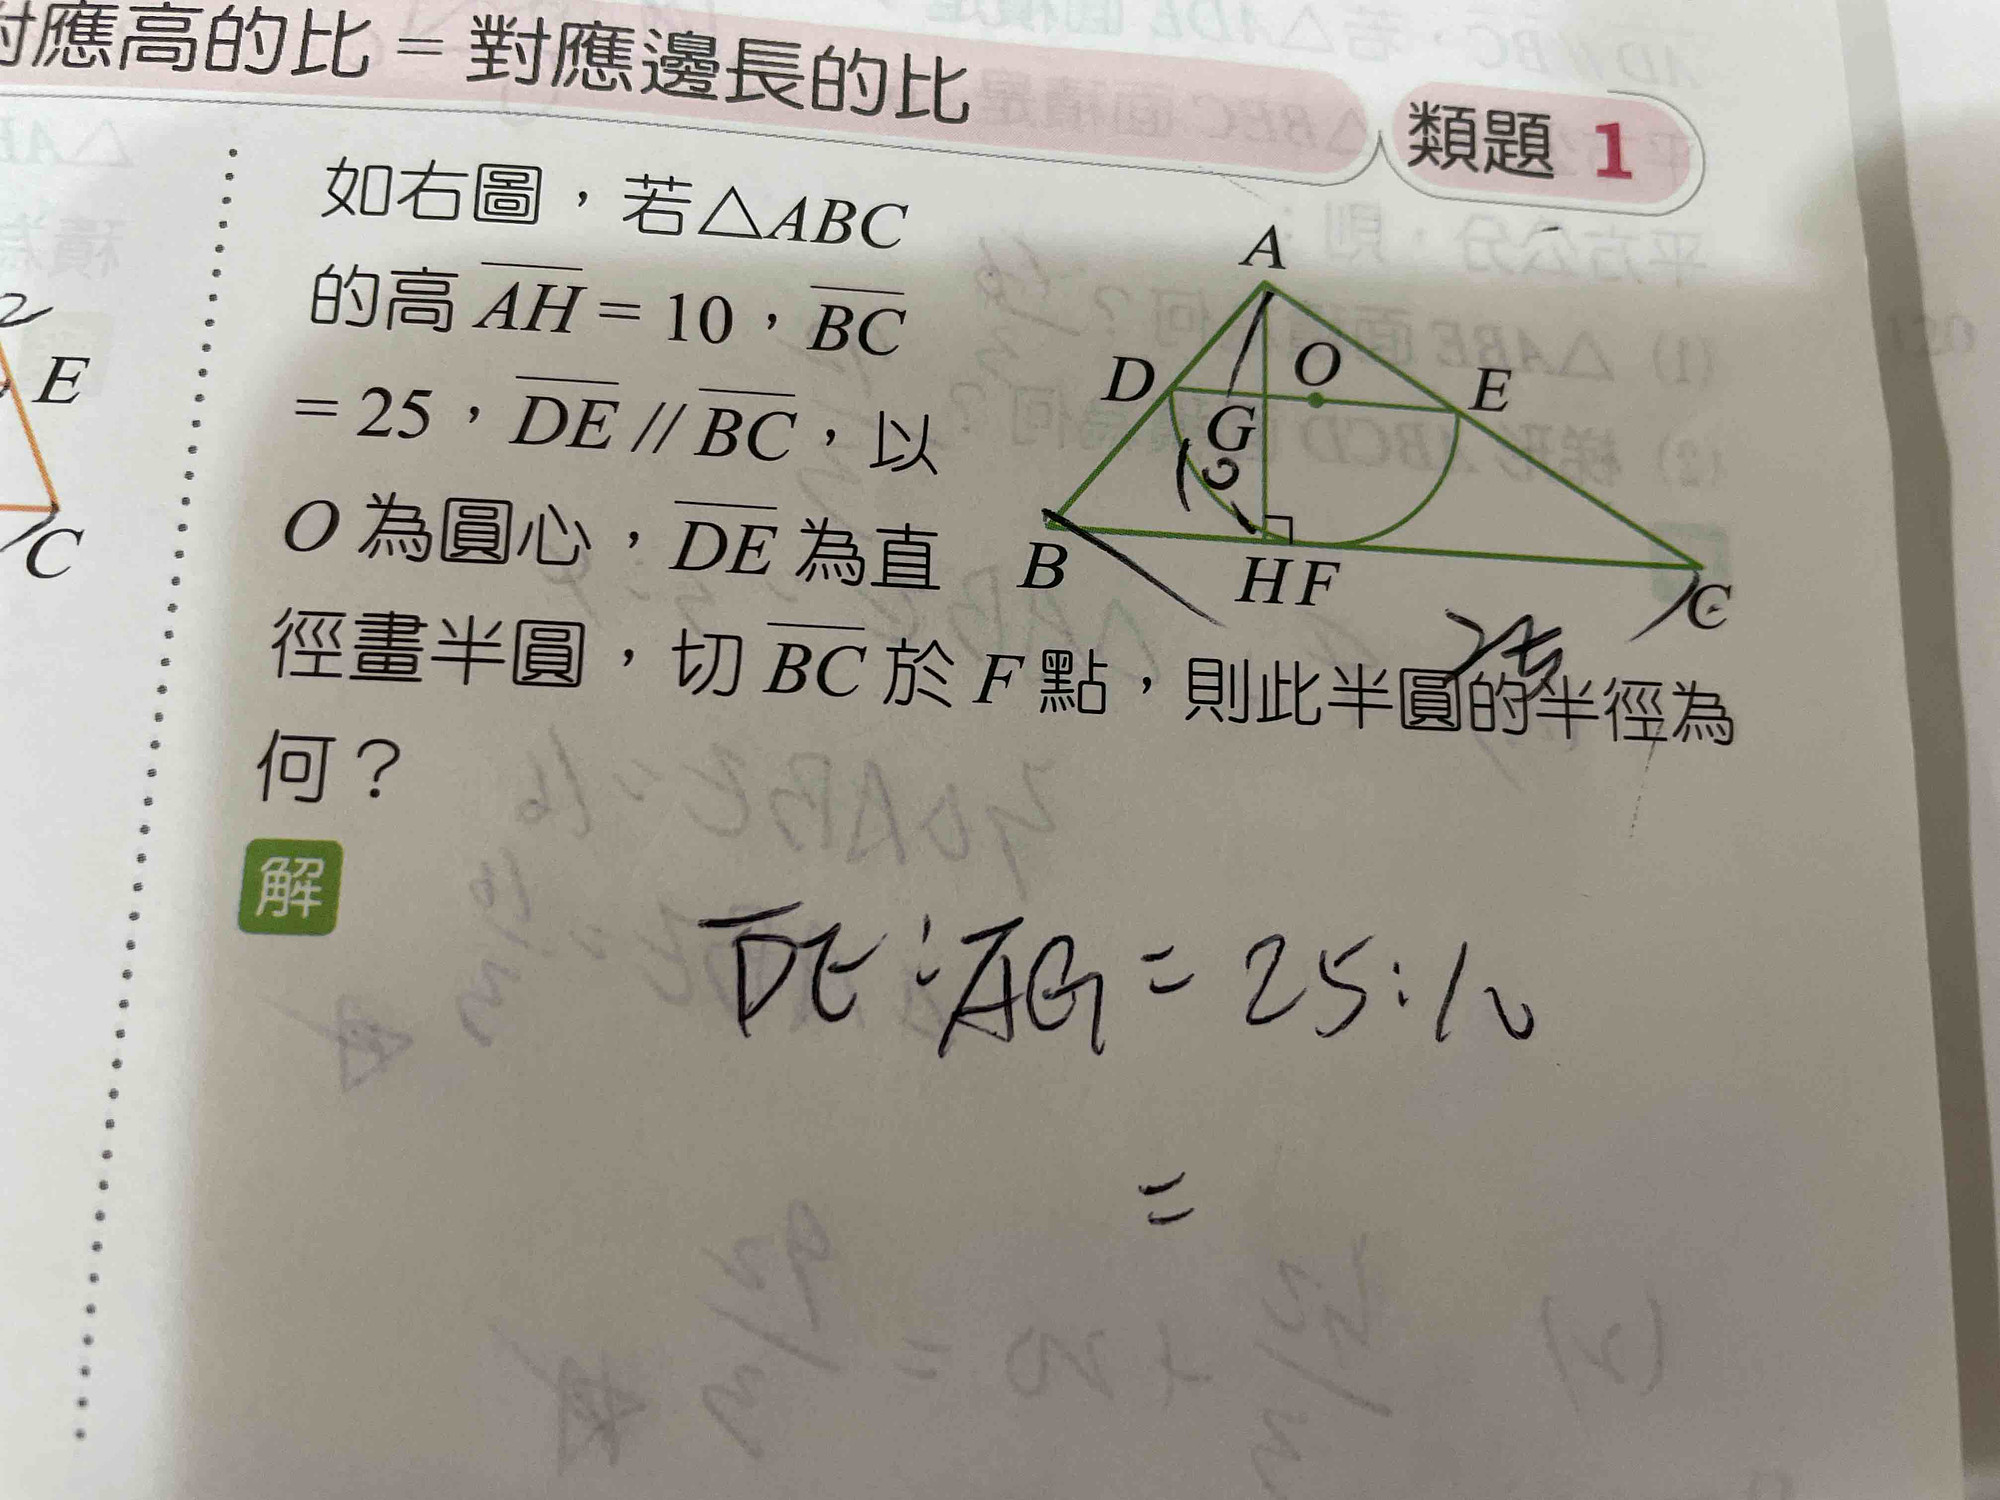 對應高的比 = 對應邊長的比
類題 1
如右圖，若△ABC
的高 AH = 10，BC
= 25，DE // BC，以
O 為圓心，DE 為直
徑畫半圓，切 BC 於 F 點，則此半圓的半徑為
何？
A
D
O
E
G
10
B
H F
C
25
E
C
解
DE : AG = 25 : 10
=